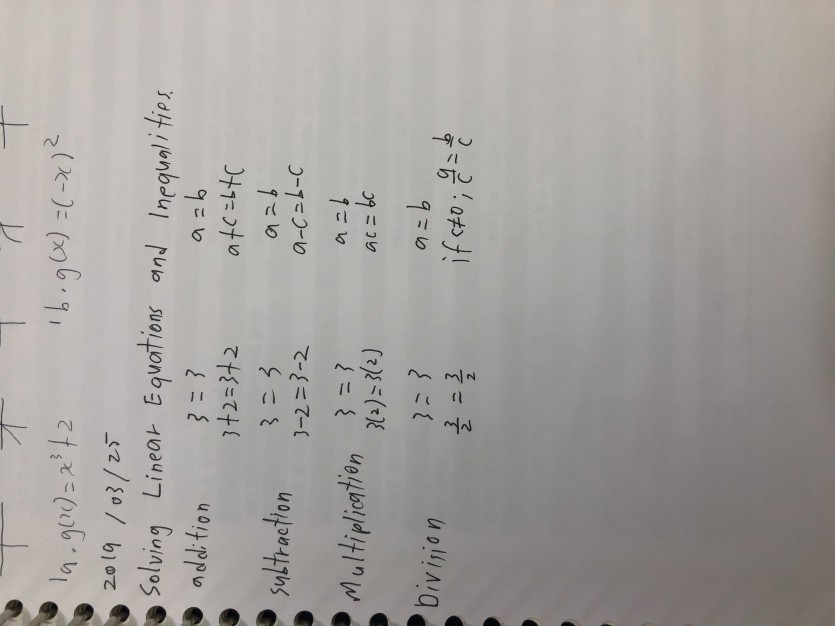 1a. g(x)=x³+2 1b. g(x)=(-x)²
2019 /03/25
Solving Linear Equations and Inequalities.
addition 3=3 a=b
3+2=3+2 a+c=b+c
subtraction 3=3 a=b
3-2=3-2 a-c=b-c
Multiplication 3=3 a=b
3(2)=3(2) ac=bc
Division 3=3 a=b
3/2=3/2 if c≠0; a/c=b/c